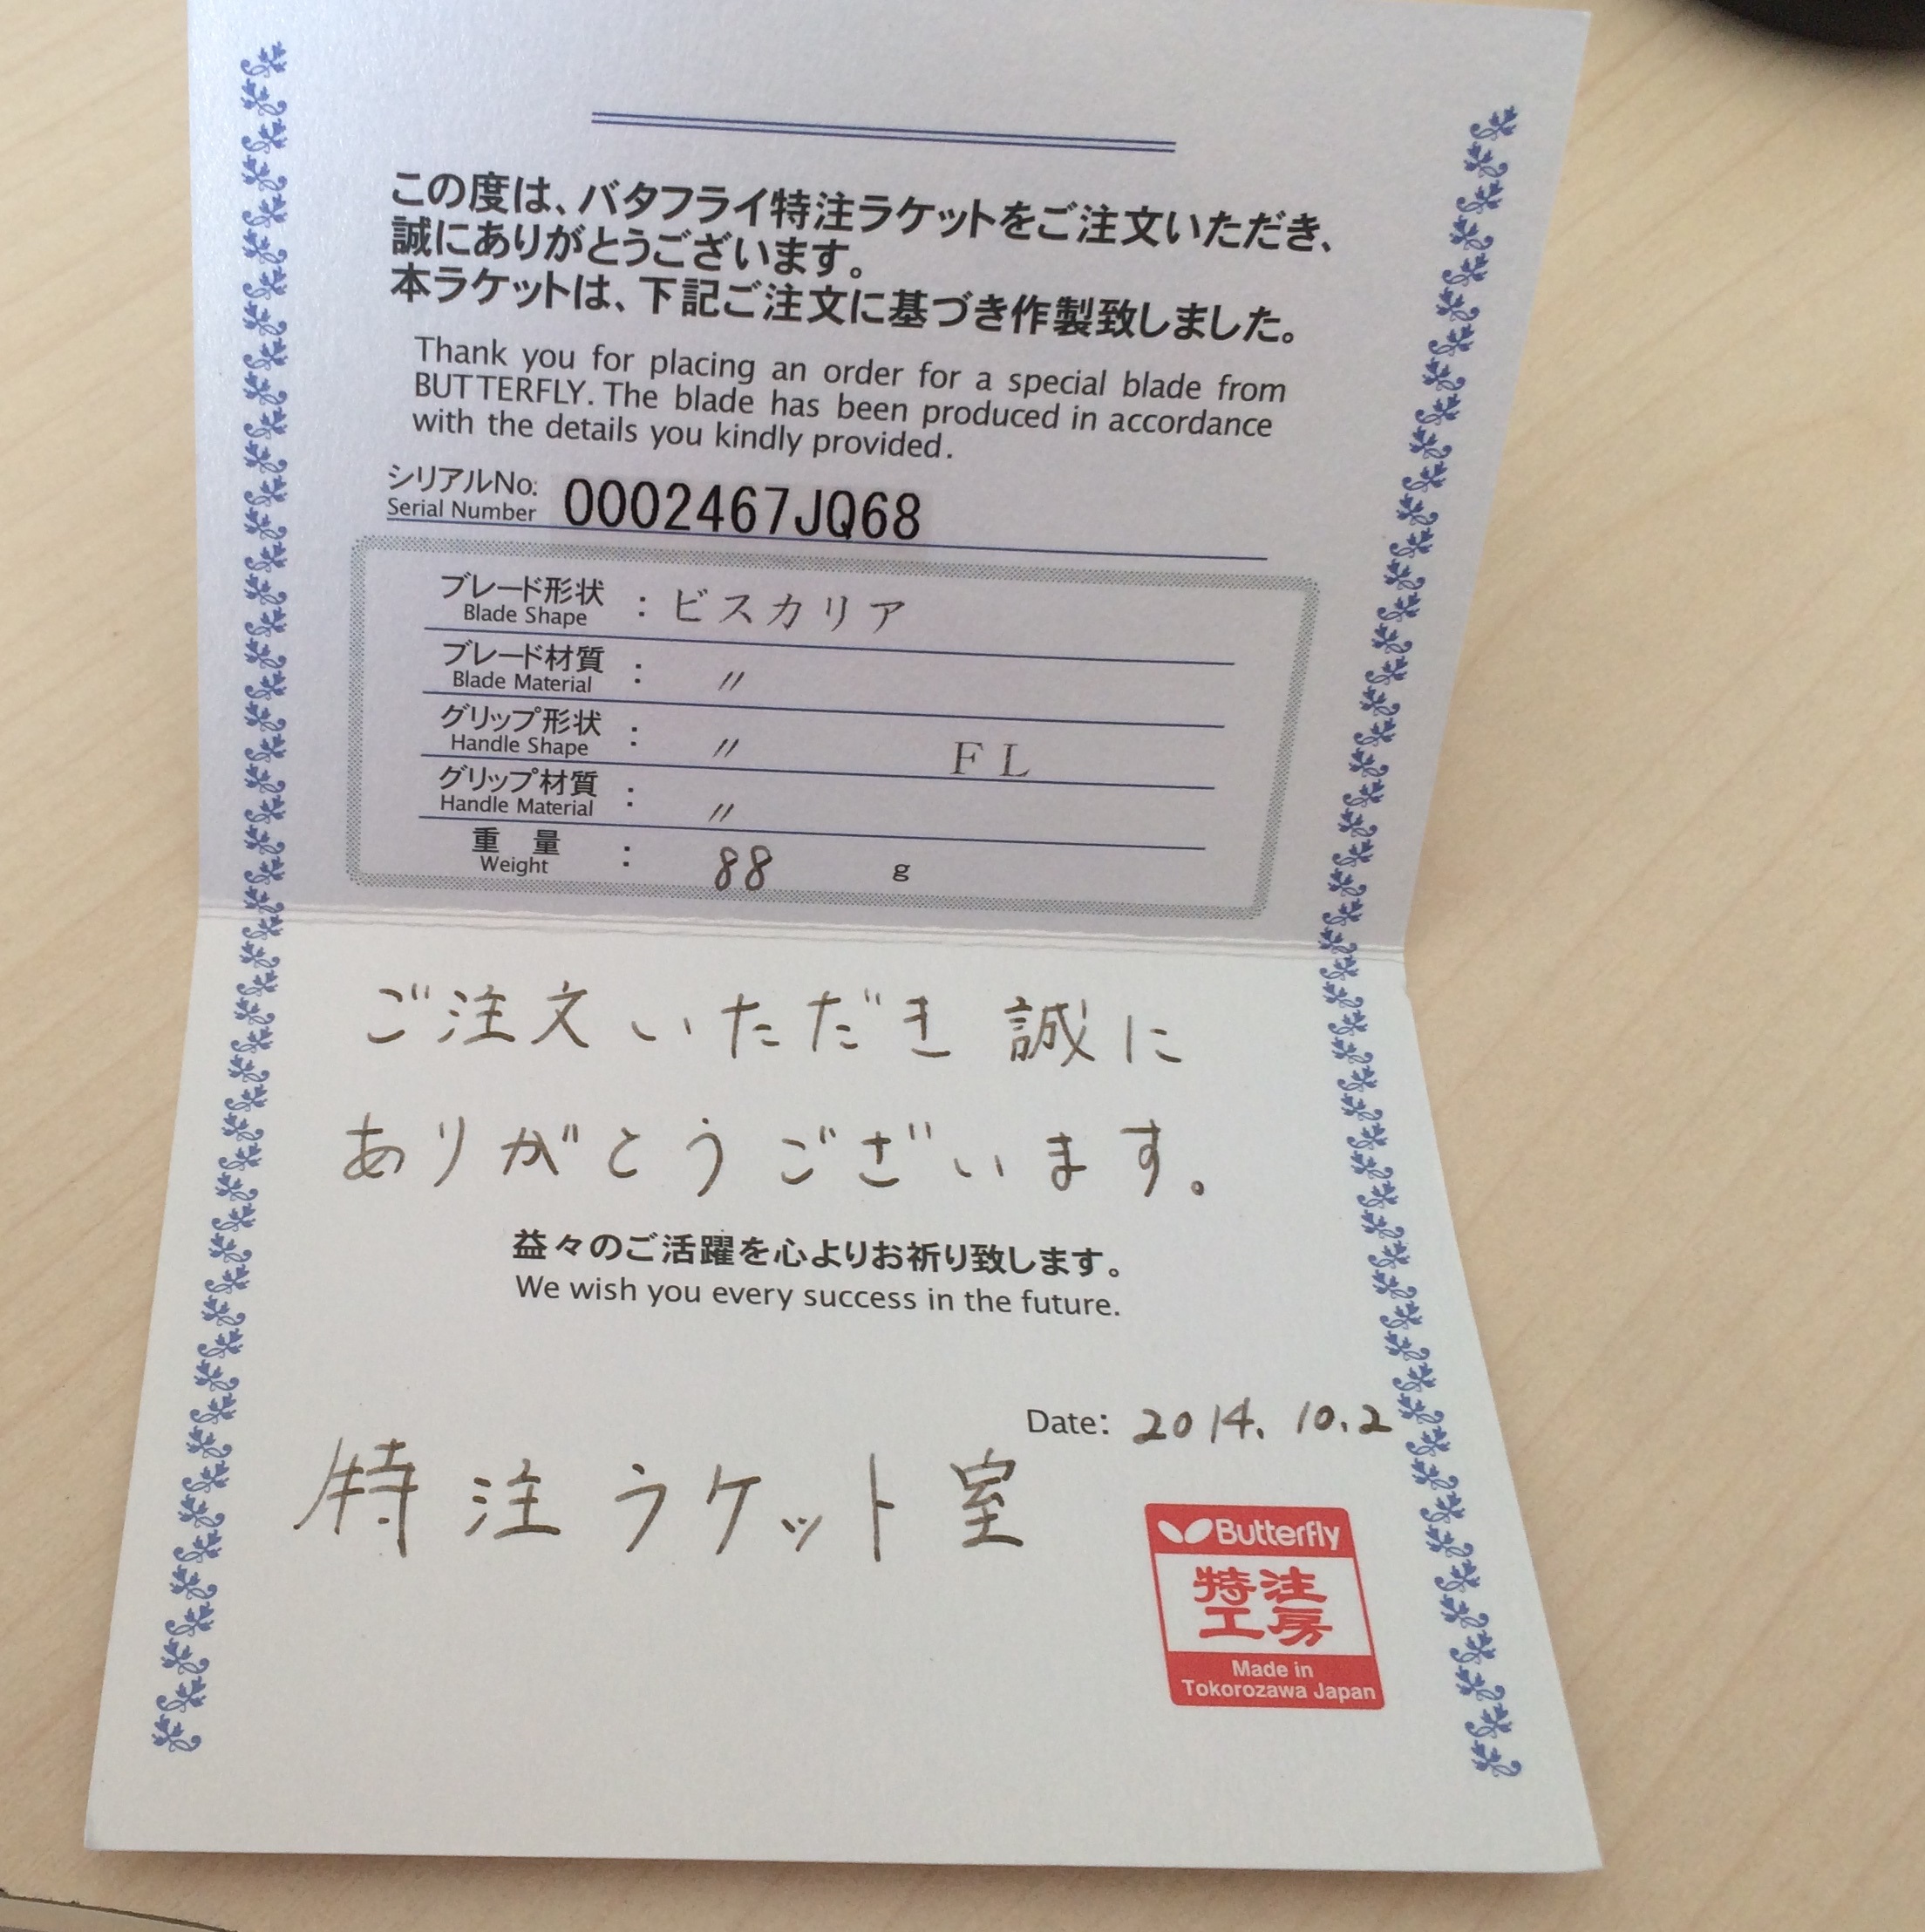 この度は、バタフライ特注ラケットをご注文いただき、
誠にありがとうございます。
本ラケットは、下記ご注文に基づき作製致しました。
Thank you for placing an order for a special blade from
BUTTERFLY. The blade has been produced in accordance
with the details you kindly provided.
シリアルNo.
Serial Number 0002467JQ68
ブレード形状
Blade Shape : ビスカリア
ブレード材質
Blade Material : 〃
グリップ形状
Handle Shape : 〃 FL
グリップ材質
Handle Material : 〃
重量
Weight : 88 g
ご注文いただき誠に
ありがとうございます。
益々のご活躍を心よりお祈り致します。
We wish you every success in the future.
Date: 2014. 10.2
特注ラケット室
Butterfly
特注
工房
Made in
Tokorozawa Japan